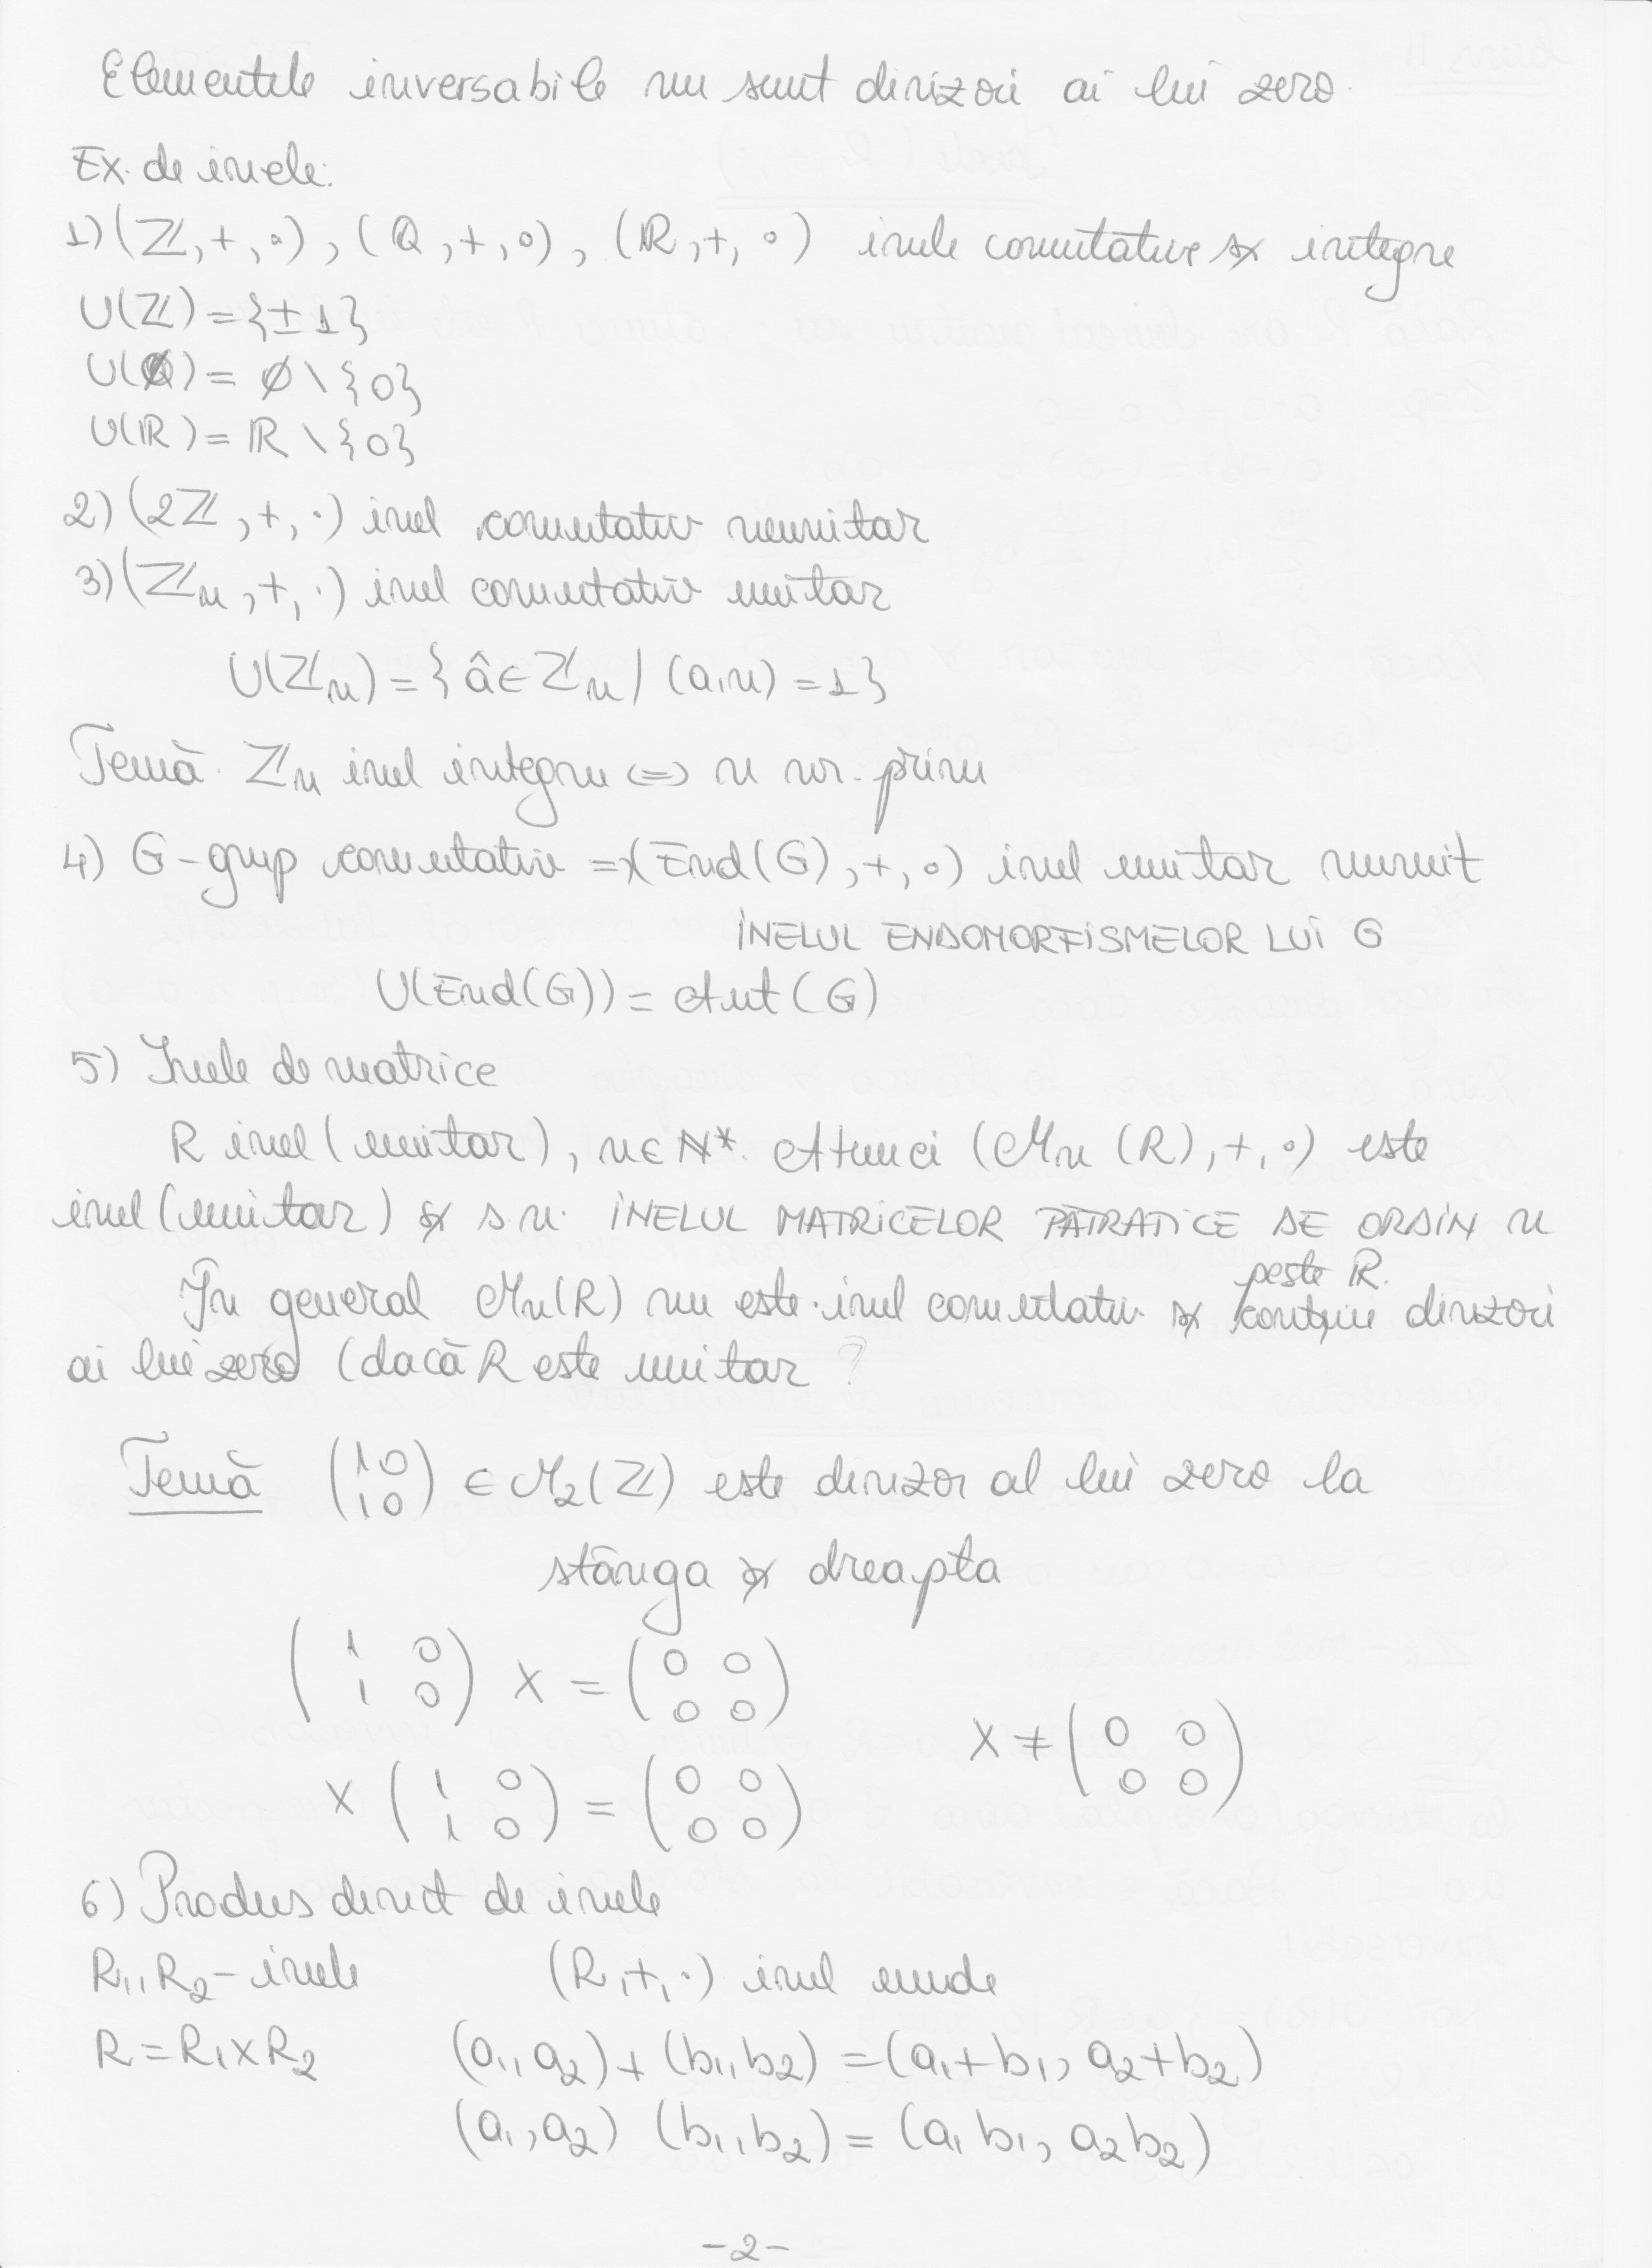 Elementele inversabile nu sunt divizori ai lui zero.
Ex. de inele:
1) (ℤ, +, ∘), (ℚ, +, ∘), (ℝ, +, ∘) inele comutative și integre
U(ℤ) = {± 1}
U(ℚ) = ∅ \ {0}
U(ℝ) = ℝ \ {0}
2) (2ℤ, +, ·) inel comutativ neunitar
3) (ℤn, +, ·) inel comutativ unitar
U(ℤn) = { â ∈ ℤn / (a,n) = 1}
Temă. ℤn inel integru ⇔ n nr. prim
4) G - grup comutativ ⇒ (End(G), +, ∘) inel unitar numit
INELUL ENDOMORFISMELOR LUI G
U(End(G)) = Aut(G)
5) Inele de matrice
R inel (unitar), n ∈ N*. Atunci (Mn (R), +, ∘) este
inel (unitar) și s.n. INELUL MATRICELOR PĂTRATICE DE ORDIN n
peste R.
În general Mn(R) nu este inel comutativ și conține divizori
ai lui zero (dacă R este unitar ?
Temă (1 0 / 1 0) ∈ M2(ℤ) este divizor al lui zero la
stânga și dreapta
(1 0 / 1 0) X = (0 0 / 0 0)
X ≠ (0 0 / 0 0)
X (1 0 / 1 0) = (0 0 / 0 0)
6) Produs direct de inele
R1, R2 - inele (R, +, ·) inel unde
R = R1 x R2 (a1, a2) + (b1, b2) = (a1 + b1, a2 + b2)
(a1, a2) (b1, b2) = (a1 b1, a2 b2)
-2-